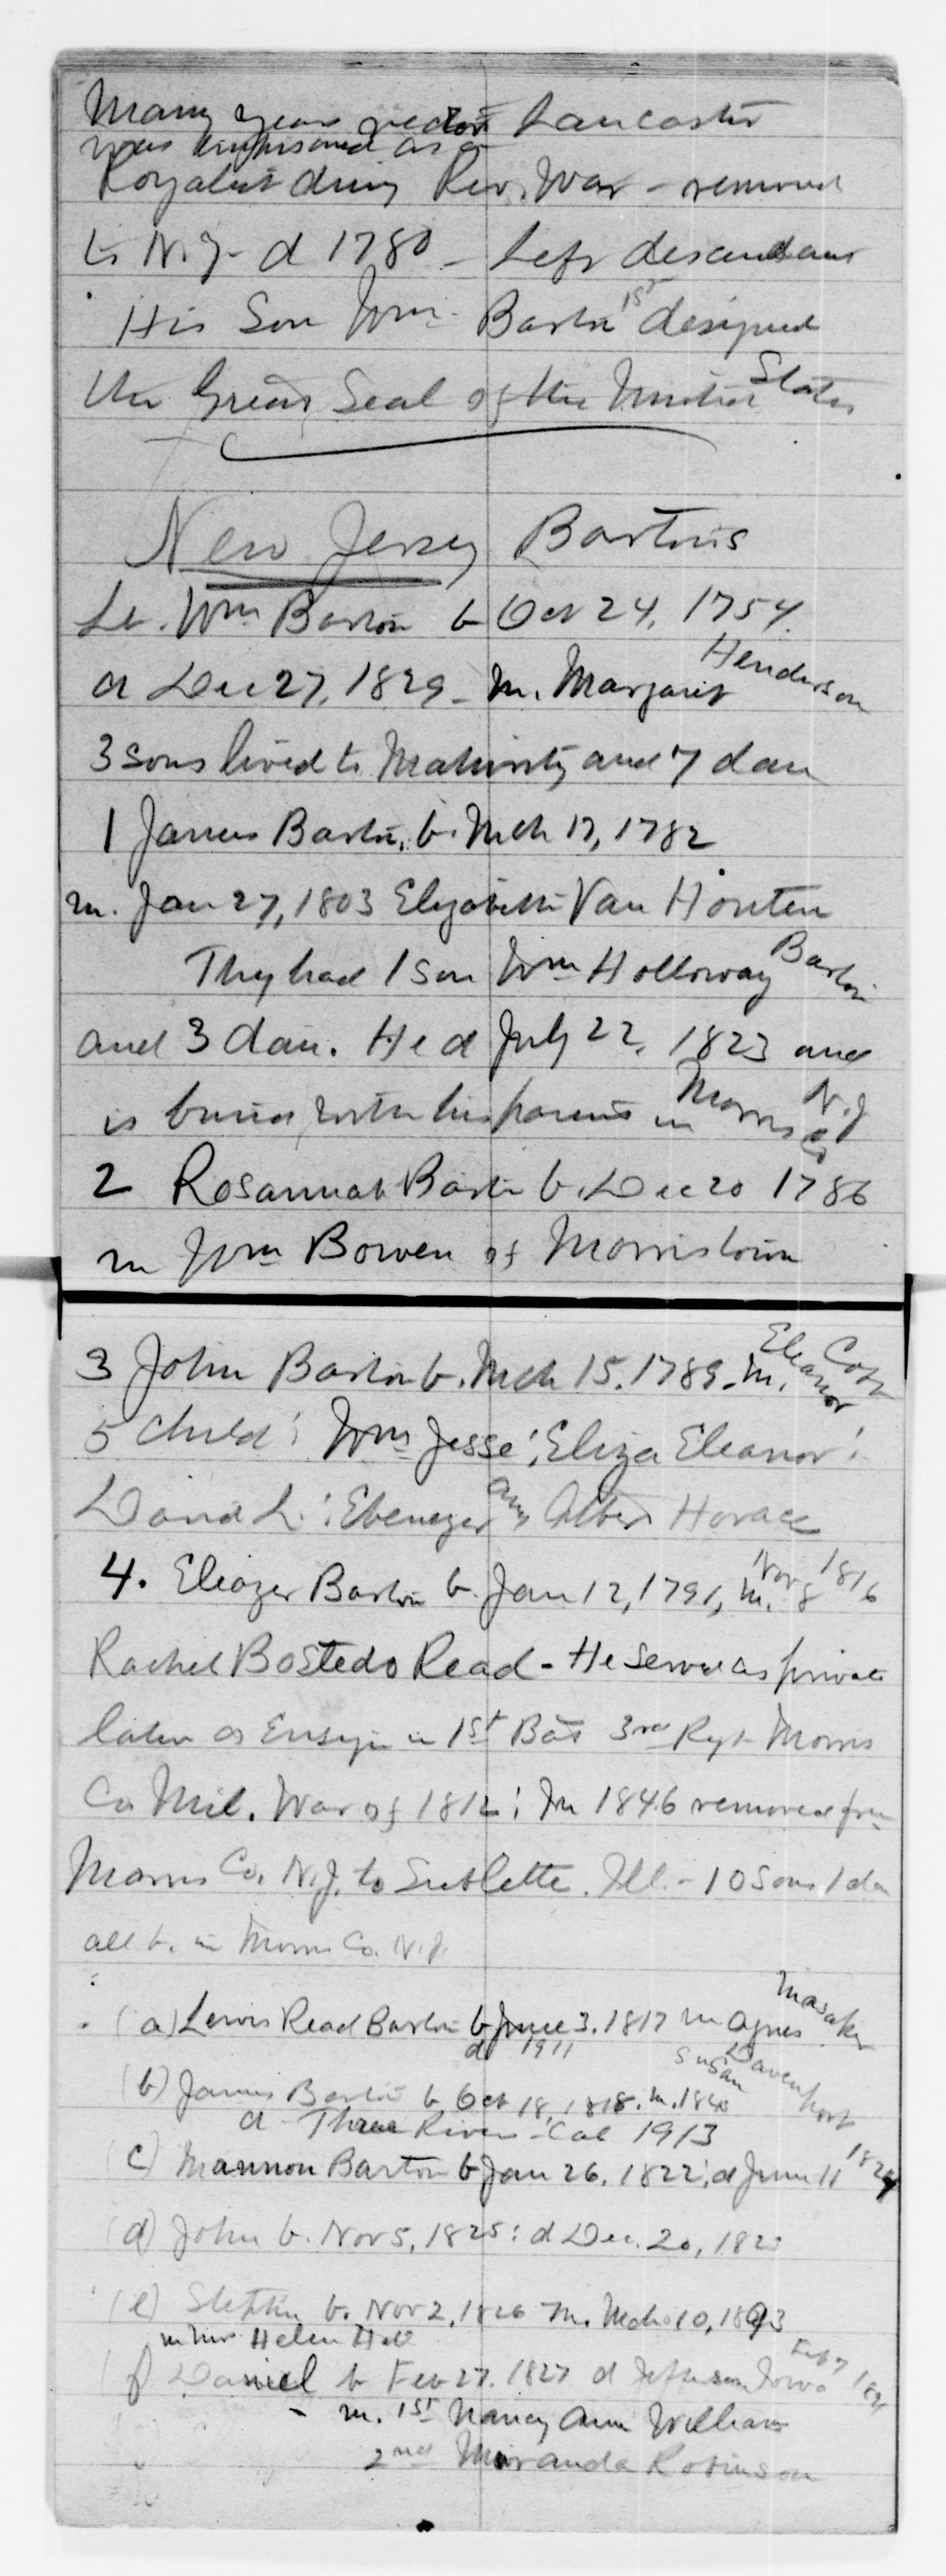 Many years rector Lancaster
was imprisoned as a
Royalist during Rev. War - removed
to N.Y - d 1780 - Left descendans
His Son Wm. Barton 1st designed
the Great Seal of the United States
New Jersey Bartons
Lt. Wm Barton b Oct 24, 1754.
d Dec 27, 1829 - m. Margaret Henderson
3 sons lived to Maturity and 7 dau
1 James Barton, b. Mch 17, 1782
m. Jan 27, 1803 Elizabeth Van Houten
They had 1 son Wm Holloway Barton
and 3 dau. He d July 22, 1823 and
is buried with his parents in Morris Co N.J
2 Rosannah Barton b. Dec 20 1786
m Wm Bowen of Morristown
3 John Barton b. Mch 15. 1789. m. Eleanor
5 Child: Wm Jesse; Eliza Eleanor;
David L.; Ebenezer and Albert Horace
4. Eliazer Barton b. Jan 12, 1791, m. Nov 8 1816
Rachel Bostedo Read - He served as private
later as Ensign in 1st Bat 3rd Regt Morris
Co Mil. War of 1812; In 1846 removed from
Morris Co. N.J. to Sublette. Ill. - 10 Sons 1 da
all b. in Morris Co. N.J.
(a) Lewis Read Barton b June 3. 1817 m Agnes Masaker
d 1911
(b) James Barton b Oct 18, 1818. m. 1840 Susan Davenport
d - Three Rivers - Cal 1913
(c) Mannon Barton b Jan 26. 1822; d June 11 1824
(d) John b. Nov 5, 1825: d Dec. 20, 182
(e) Stephen b. Nov 2, 1826 m. Mch 10, 1893
Helen Hall
f Daniel b Feb 27. 1827 d Jefferson Iowa
m. 1st Nancy Ann Williams
2nd Miranda Robinson